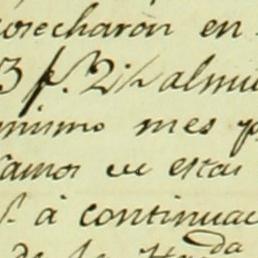 cosecharon en
3 f. 2½ almu
mismo mes
ramos en estas
á continuac
de la Hda